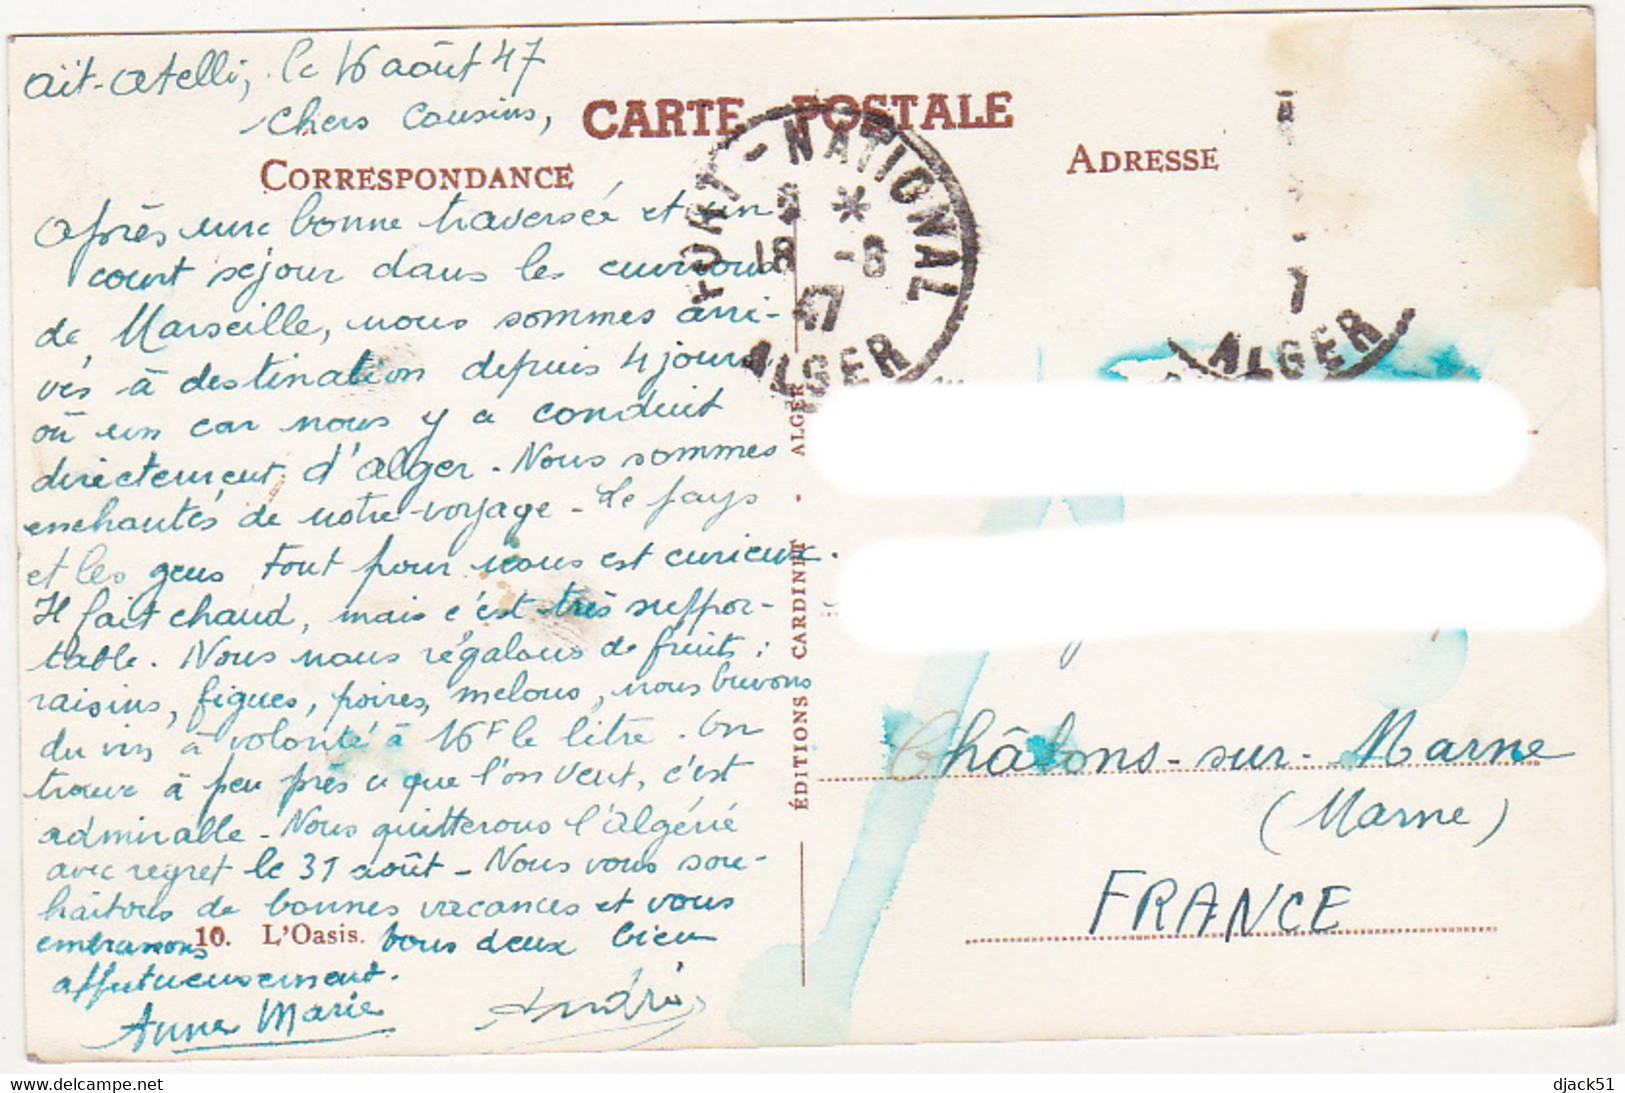 Aït-Atelli, le 16 août 47
Chers Cousins,
CARTE POSTALE
CORRESPONDANCE
ADRESSE
Après une bonne traversée et un
court séjour dans les environs
de Marseille, nous sommes arri-
vés à destination depuis 4 jours
où un car nous y a conduit
directement d'Alger. Nous sommes
enchantés de notre voyage - Le pays
et les gens tout pour nous est curieux.
Il fait chaud, mais c'est très suppor-
table. Nous nous régalons de fruits :
raisins, figues, poires, melons, nous buvons
du vin à volonté à 16F le litre. On
trouve à peu près ce que l'on veut, c'est
admirable - Nous quitterons l'Algérie
avec regret le 31 août - Nous vous sou-
haitons de bonnes vacances et vous
embrassons tous deux bien
10. L'Oasis.
affectueusement.
Anne Marie André
FORT-NATIONAL
18 -8
47
ALGER
ALGER
ÉDITIONS CARDINET - ALGER
Châlons-sur-Marne
(Marne)
FRANCE
delcampe.net
djack51